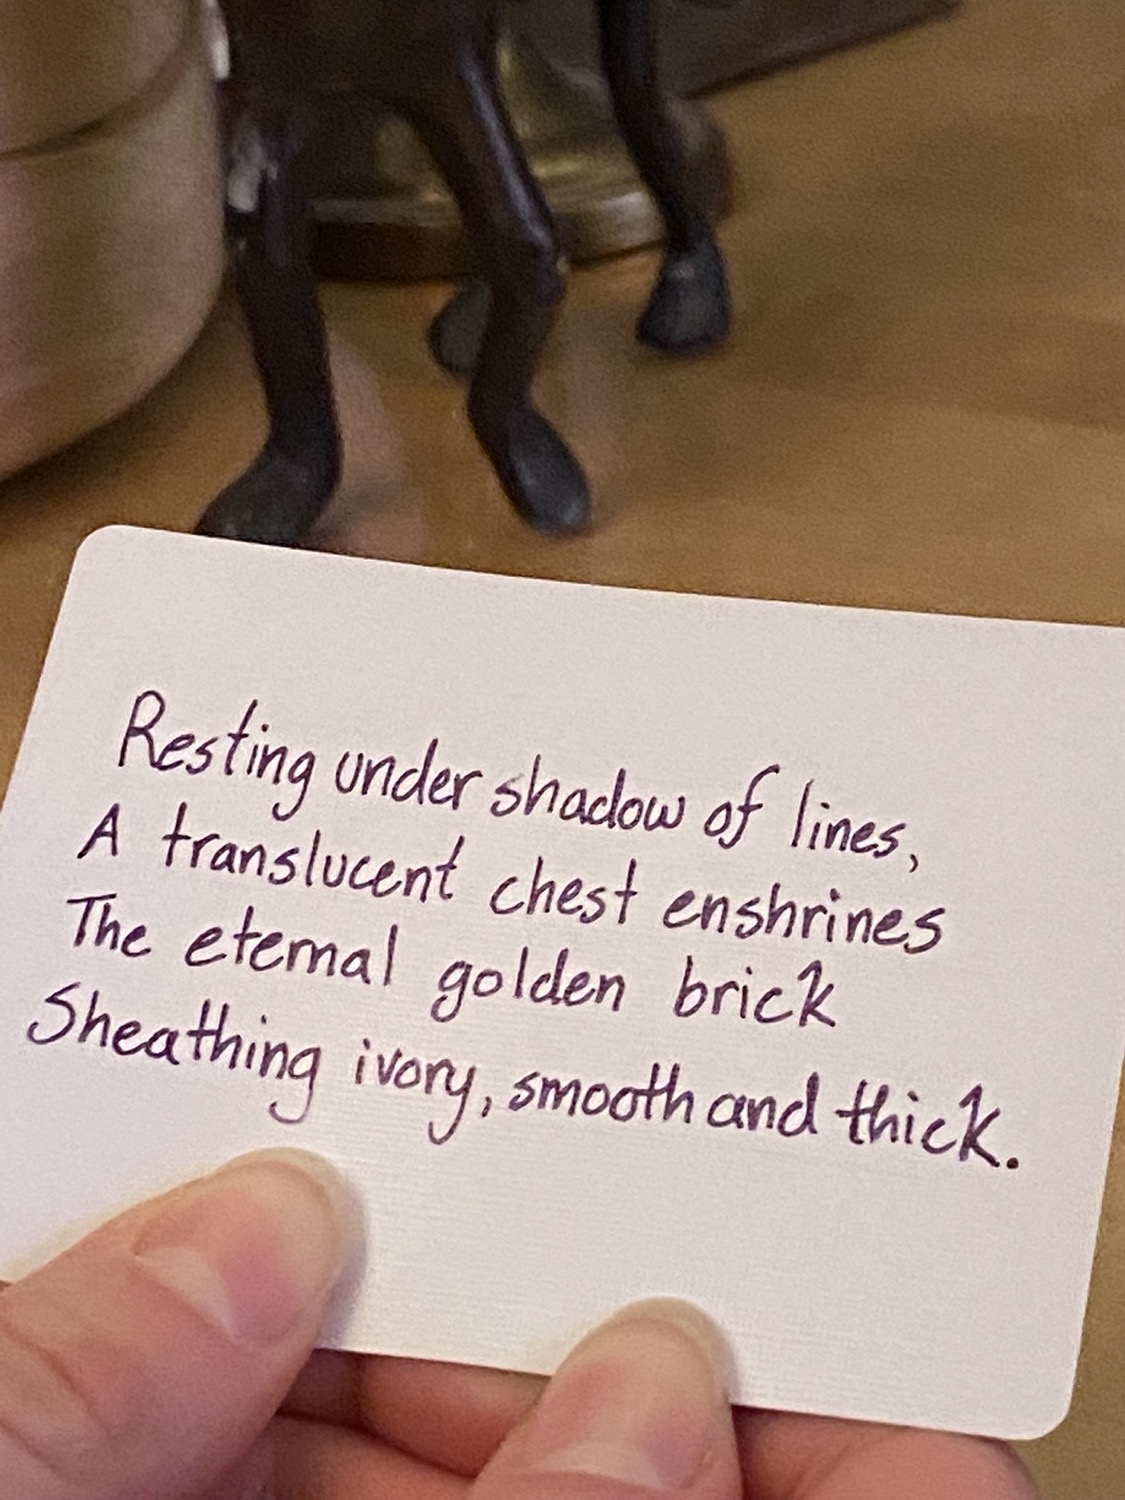 Resting under shadow of lines,
A translucent chest enshrines
The eternal golden brick
Sheathing ivory, smooth and thick.